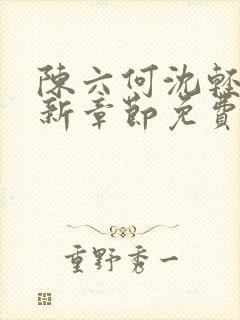 陳六何沈輕
新章節免費
重野秀一